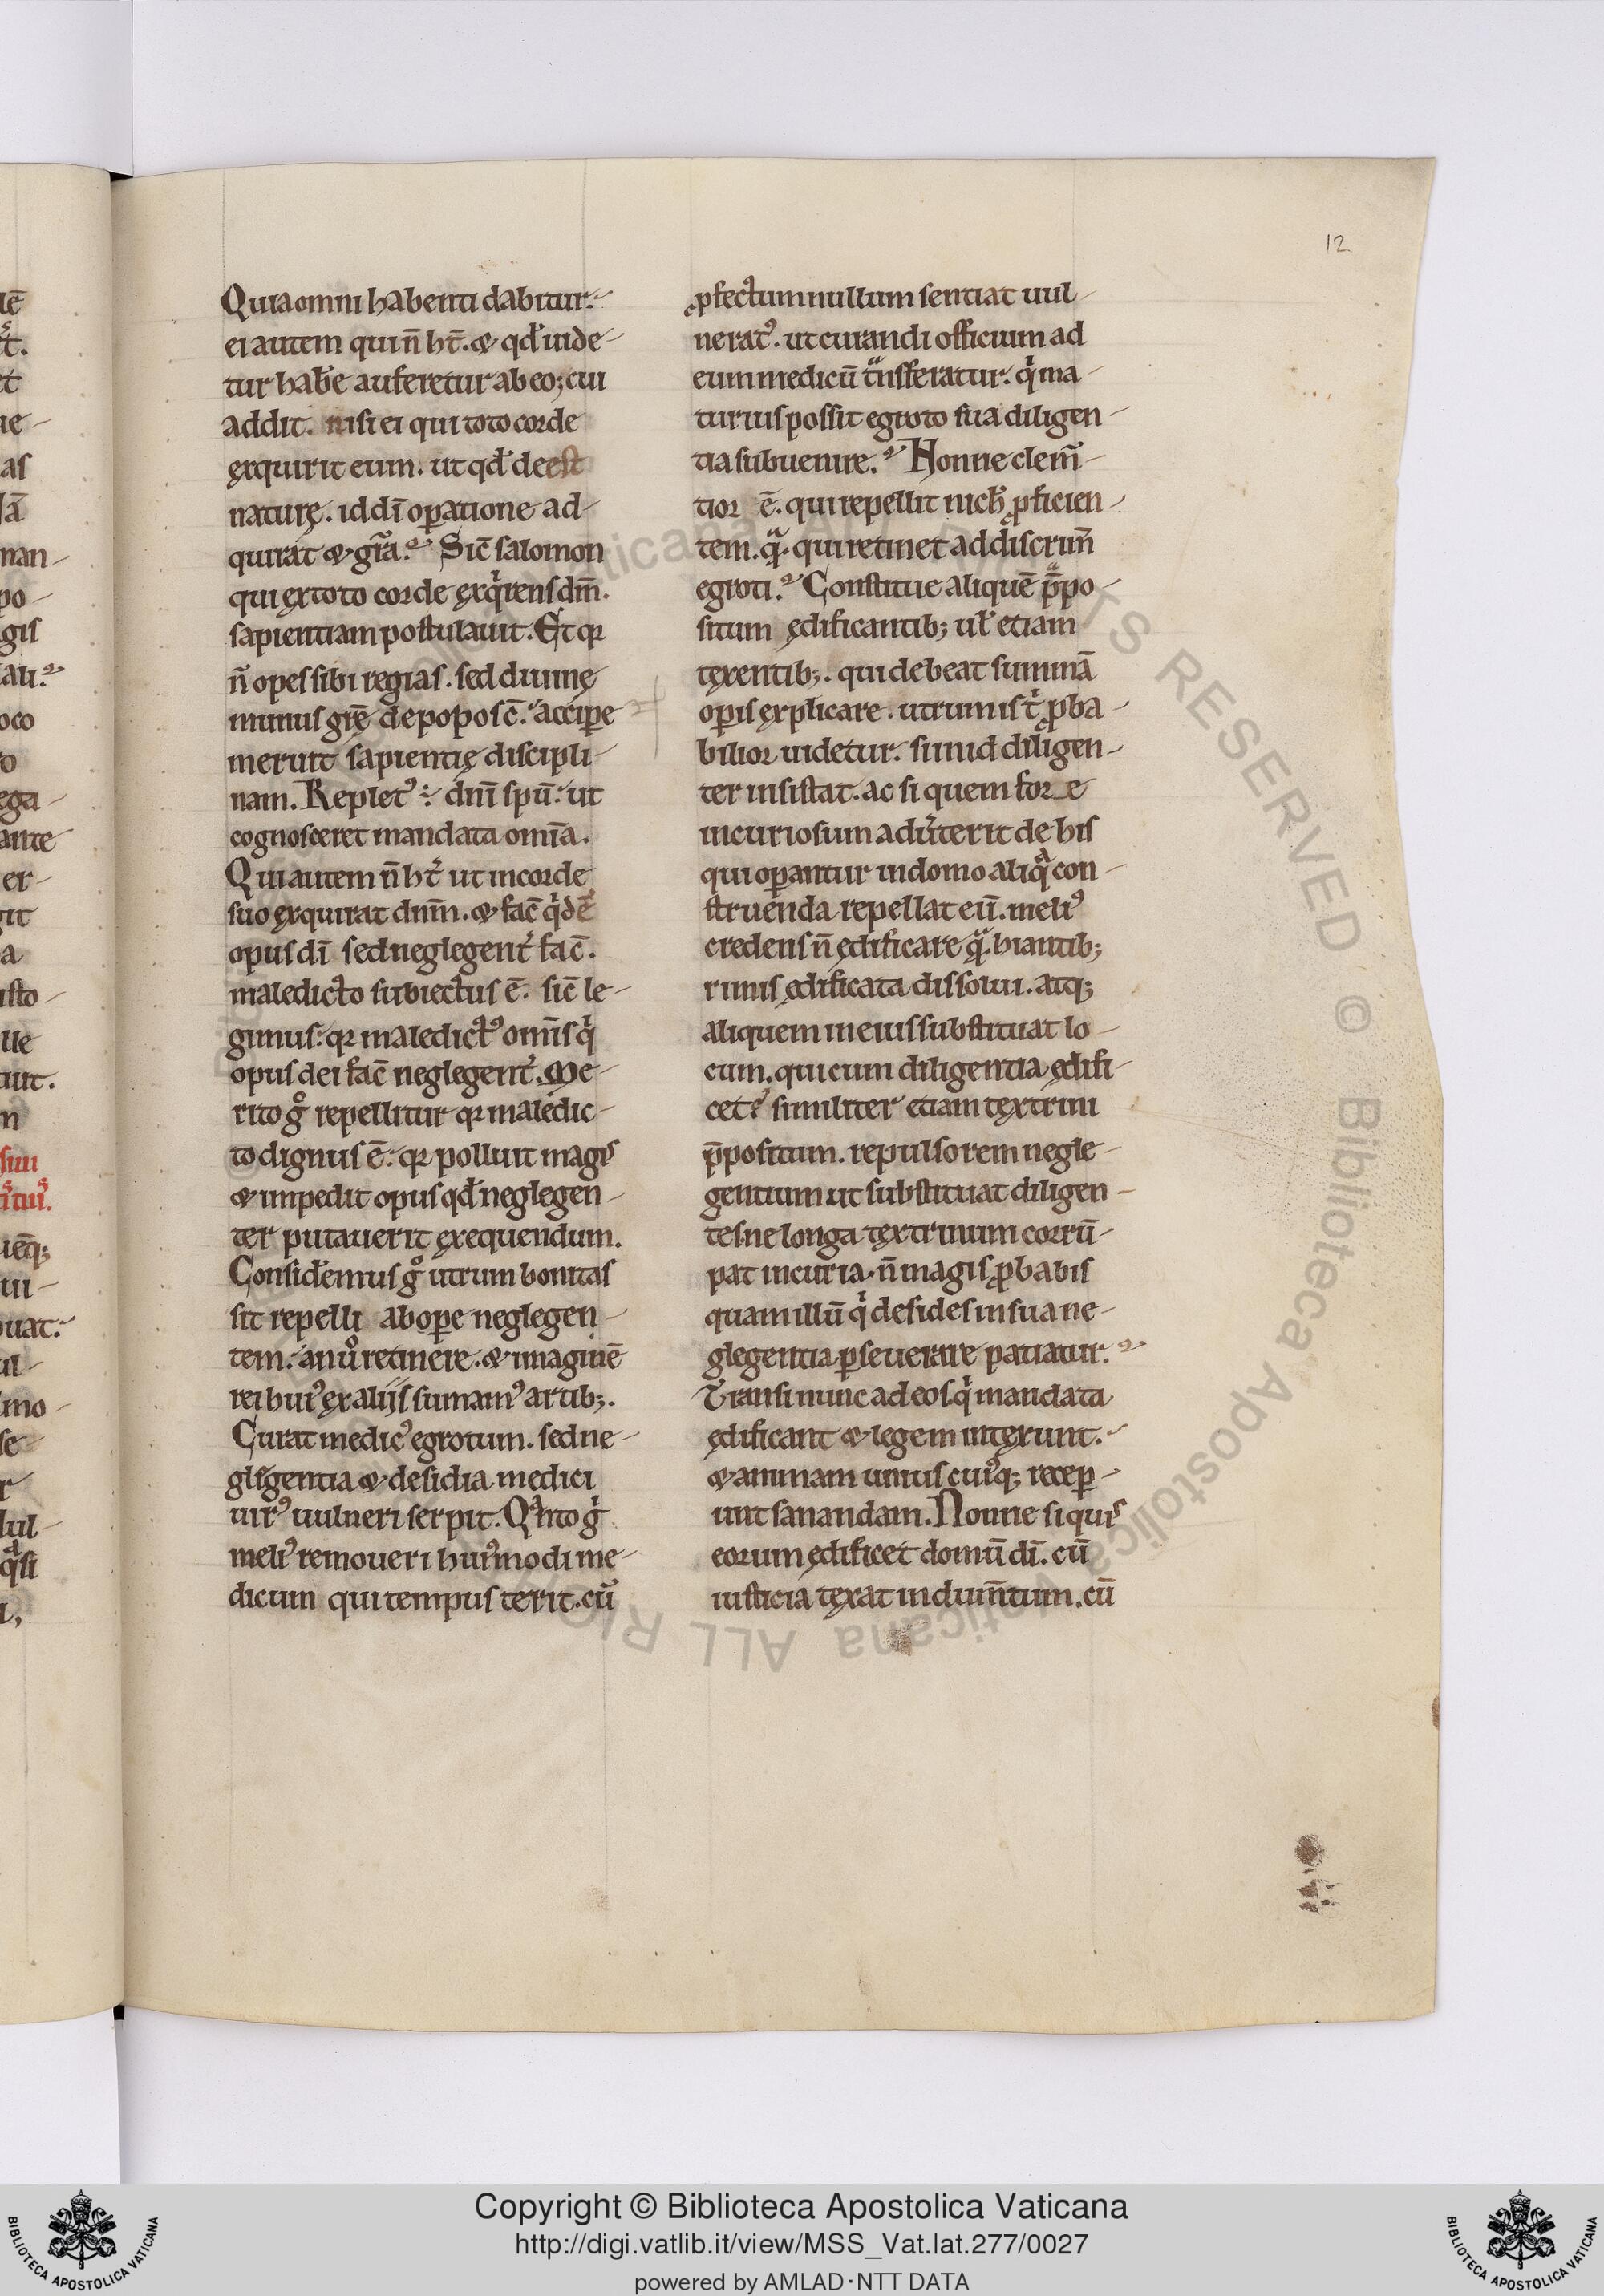 12
Quia omni habenti dabitur.
ei autem qui n̄ ht̄. & qđ uide-
tur hab̄e auferetur ab eo; cui
addit. nisi ei qui toto corde
exquirit eum. ut qđ deest
naturę. id dī op̱atione ad-
quirat & gr̄a. Sic̄ salomon
qui ex toto corde exqͥrens dn̄m.
sapientiam postulauit. Et qꝛ
n̄ opes sibi regias. sed diuinę
munus gr̄ę depoposc̄. accip̱e
meruit sapientię discipli-
nam. Repletꝰ ÷ dn̄i spū. ut
cognosceret mandata om̄ia.
Qui autem n̄ ht̄ ut in corde
suo exquirat dn̄m. & fac̄ qͥdē
opus dī sed neglegent̄ fac̄.
maledicto subiectus ē. sic̄ le-
gimus. qꝛ maledictꝰ om̄is qͥ
opus dei fac̄ neglegent̄. Me-
rito gͦ repellitur qꝛ maledic-
to dignus ē. qꝛ polluit magis
& impedit opus qđ neglegen-
ter putauerit exequendum.
Consid̄emus gͦ utrum bonitas
sit repelli ab op̱e neglegen-
tem. an uͦ retinere. & imaginē
rei huiꝰ ex alijs sumamꝰ artib;.
Curat medicꝰ egrotum. sed ne-
glegentia & desidia medici
uirꝰ uulneri serpit. Qͣnto gͥ
meliꝰ remoueri huiꝰmodi me-
dicum qui tempus terit. cū
ꝓfectum nullum sentiat uul-
neratꝰ. ut curandi officium ad
eum medicū tͣnsferatur. qͥ ma-
turius possit egroto sua diligen-
tia subuenire. Nonne clem̄-
tior ē. qui repellit nich̄ ꝓficien-
tem. qͣ. qui retinet ad discrim̄
egroti. Constitue aliquē p̄po-
situm ędificantib; ul̄ etiam
texentib;. qui debeat summā
op̱is explicare. utrum ist̄ ꝓba-
bilior uidetur. si inid diligen-
ter insistat. ac si quem for e
incuriosum adūterit de his
qui op̱antur in domo aliqͣ con-
struenda repellat eū. meliꝰ
credens n̄ ędificare qͣ. hiantib;
rimis ędificata dissolui. atq;
aliquem in eius substituat lo-
cum. qui cum diligentia ędifi-
cet similiter etiam textrini
p̄positum. repulsorem negle-
gentium ut substituat diligen-
tes ne longa textrinum corrū-
pat incuria. n̄ magis ꝓbabis
quam illū qͥ desides in sua ne-
glegentia p̱seuerare patiatur.
Transi nunc ad eos qͥ mandata
ędificant & legem intexunt.
& animam unius cuiꝰq; recep̱-
unt sanandam. Nonne si quis
eorum ędificet domū dī. cū
iusticia texat indum̄tum. cū
Copyright © Biblioteca Apostolica Vaticana
http://digi.vatlib.it/view/MSS_Vat.lat.277/0027
powered by AMLAD·NTT DATA
BIBLIOTECA APOSTOLICA VATICANA
BIBLIOTECA APOSTOLICA VATICANA